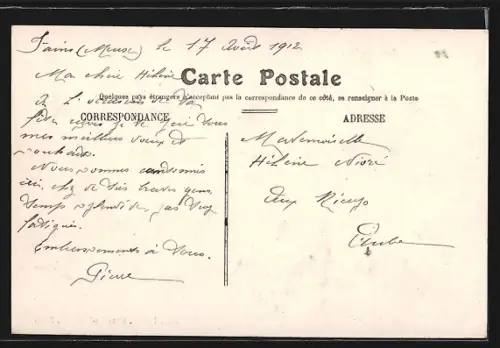 Fains (Meuse) le 17 Août 1912
Ma chère Hélène
Carte Postale
Quelques pays étrangers n'acceptent pas la correspondance de ce côté, se renseigner à la Poste
CORRESPONDANCE
ADRESSE
A l'occasion de ta
fête, je te
mes meilleurs vœux et
souhaits.
Nous sommes cantonnés
ici, chez de très braves gens,
temps splendide, pas trop
fatigués.
Embrassements à tous.
Pierre
Mademoiselle
Hélène
Aux Riceys
Aube